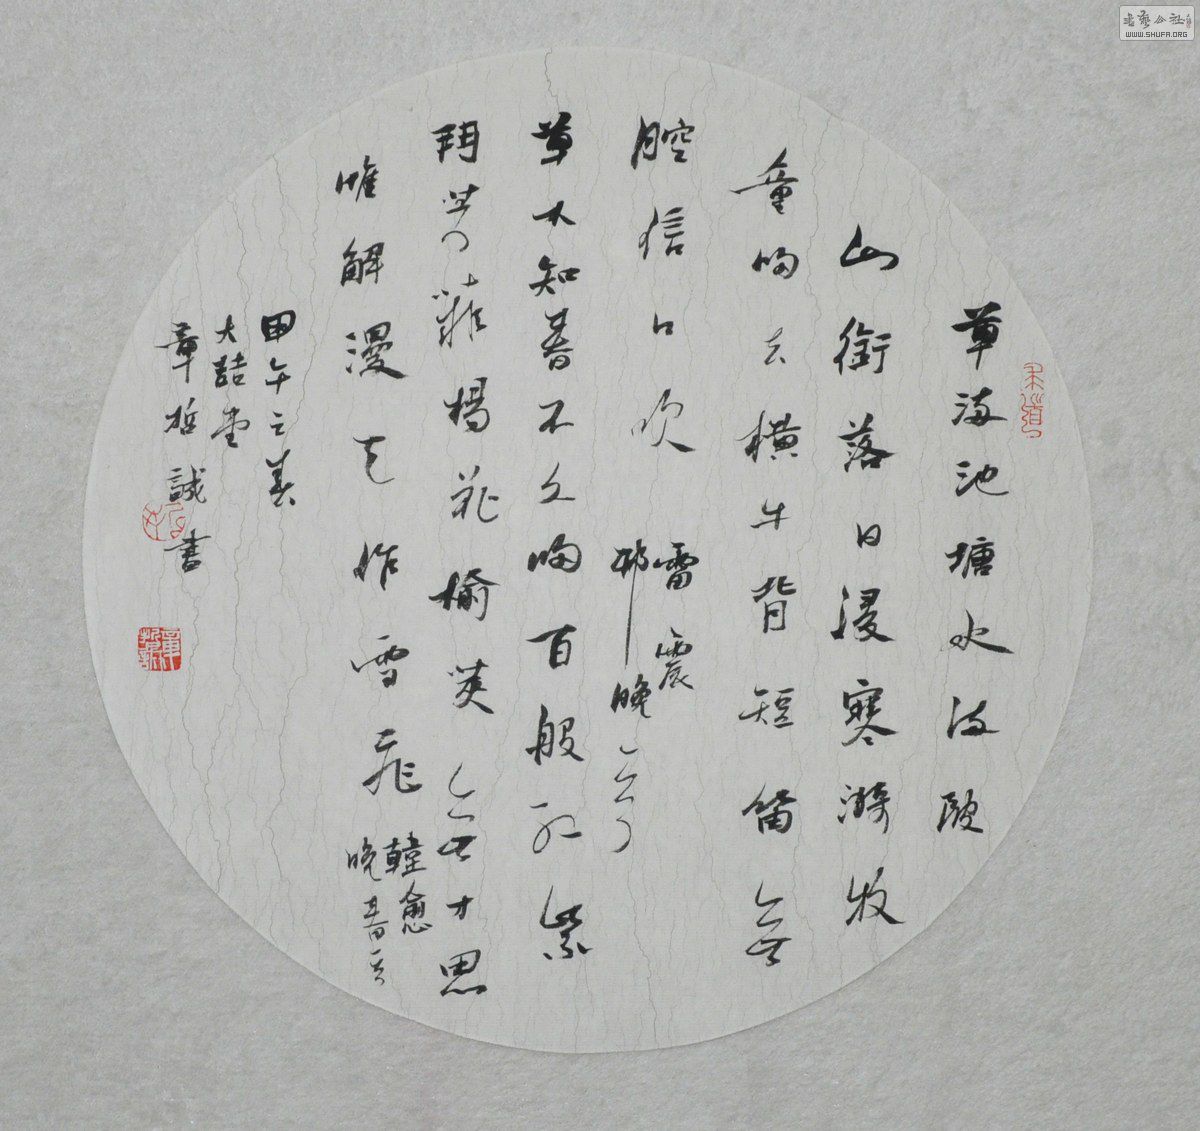 草滿池塘水滿陂
山銜落日浸寒漪牧
童歸去橫牛背短笛無
腔信口吹
雷震
邨晚一首
草木知春不久歸百般紅紫
鬥芳菲楊花榆莢無才思
惟解漫天作雪飛
韓愈
晚春一首
甲午之春
大喆堂
章哲誠書
書藝公社
WWW.SHUFA.ORG